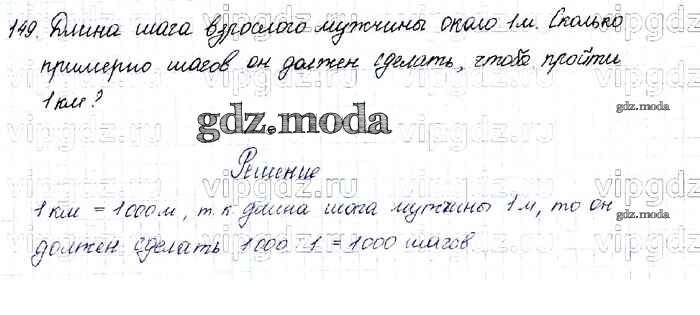 149. Длина шага взрослого мужчины около 1 м. Сколько
примерно шагов он должен сделать, чтобы пройти
1 км?
gdz.moda
gdz.moda
Решение
1 км = 1000 м, т.к. длина шага мужчины 1 м, то он
gdz.moda
должен сделать 1000 : 1 = 1000 шагов